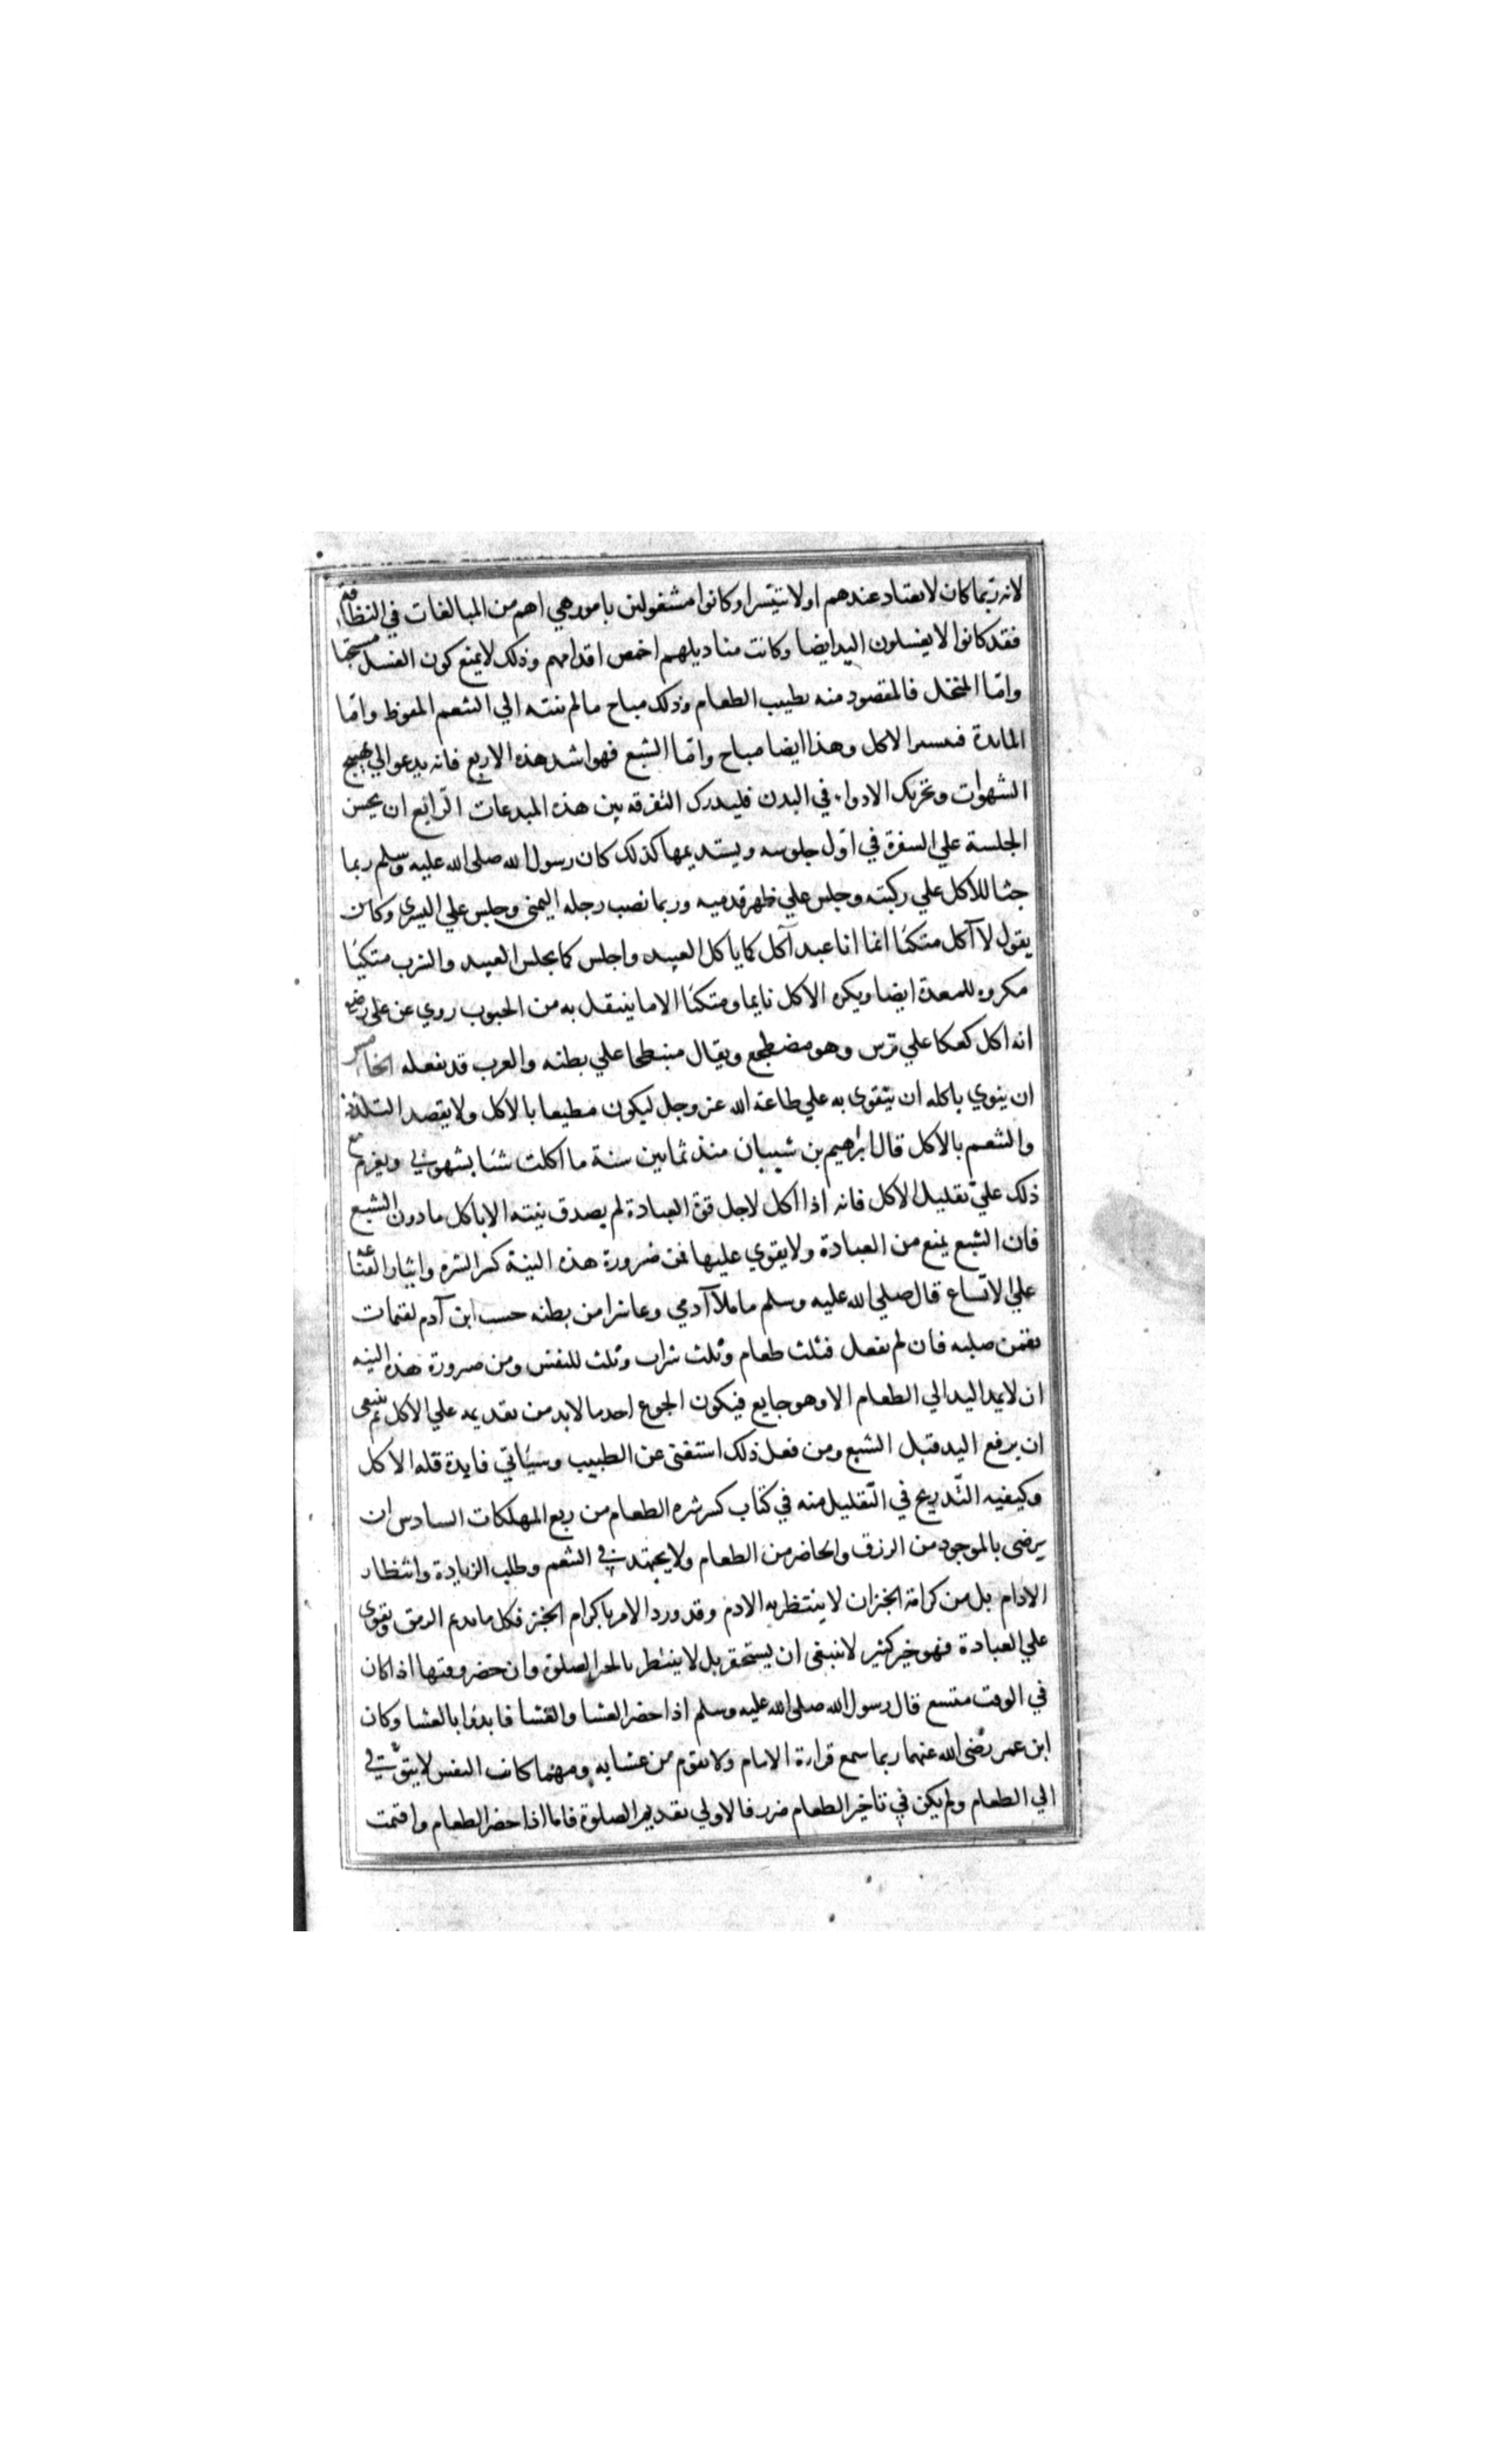 لانه ربما كان لا يعتاد عندهم او لا تتيسرا وكانوا مشغولين بامور هي اهم من المبالغات في النظافة
فقد كانوا لا يغسلون اليد ايضا وكانت مناديلهم اخمص اقدامهم وذلك لا يمنع كون الغسل مستحبا
وامّا المنخل فالمقصود منه تطييب الطعام وذلك مباح مالم ينته الي التنعم المفرط وامّا
المائدة فتيسير الاكل وهذا ايضا مباح وامّا الشبع فهو اشد هذه الاربع فانه يدعو الي تهييج
الشهوات وتحريك الادواء في البدن فليدرك التفرقه بين هذه المبدعات الرّابع ان يحسن
الجلسة علي السفرة في اوّل جلوسه ويستديمها كذلك كان رسول الله صلى الله عليه وسلم ربما
جثا للاكل علي ركبته وجلس علي ظهر قدميه وربما نصب رجله اليمنى وجلس علي اليسرى وكان
يقول لا آكل متكئا انما انا عبد آكل كما ياكل العبيد واجلس كما يجلس العبيد والشرب متكيا
مكروه للمعدة ايضا ويكره الاكل نايما ومتكئا الا ما يتنقل به من الحبوب روي عن علي رضي
انه اكل كعكا علي ترس وهو مضطجع ويقال منبطحا علي بطنه والعرب قد تفعله الخامس
ان ينوي باكله ان يتقوى به علي طاعة الله عز وجل ليكون مطيعا بالاكل ولا يقصد التلذذ
والتنعم بالاكل قال ابراهيم بن شيبان منذ ثمانين سنة ما اكلت شئا بشهوتي ويعزم مع
ذلك علي تقليل الاكل فانه اذا اكل لاجل قوة العبادة لم يصدق نيته الا باكل ما دون الشبع
فان الشبع يمنع من العبادة ولا يقوي عليها فمن ضرورة هذه النية كسر الشره وايثار القناعة
علي الاتساع قال صلي الله عليه وسلم ما ملأ آدمي وعا شرا من بطنه حسب ابن آدم لقيمات
يقمن صلبه فان لم يفعل فثلث طعام وثلث شراب وثلث للنفس ومن ضرورة هذه النية
ان لا يمد اليد الي الطعام الا وهو جايع فيكون الجوع احد ما لابد من تقديمه علي الاكل ثم ينبغي
ان يرفع اليد قبل الشبع ومن فعل ذلك استغنى عن الطبيب وسيأتي فايدة قلة الاكل
وكيفيه التّدريج في التّقليل منه في كتاب كسر شره الطعام من ربع المهلكات السادس ان
يرضى بالموجود من الرزق والحاضر من الطعام ولا يجتهد في التنعم وطلب الزيادة وانتظار
الادام بل من كرامة الخبز ان لا ينتظر به الادم وقد ورد الامر باكرام الخبز فكل ما يديم الرمق ويقوي
علي العبادة فهو خير كثير لا ينبغي ان يستحقر بل لا ينتظر بالخبز الصلوة وان حضر وقتها اذا كان
في الوقت متسع قال رسول الله صلى الله عليه وسلم اذا حضر العشا والعشا فابدؤا بالعشا وكان
ابن عمر رضى الله عنهما ربما سمع قراءة الامام ولا يقوم من عشايه ومهما كانت النفس لا يتوق
الي الطعام ولم يكن في تاخير الطعام ضرر فالاولي تقديم الصلوة فاما اذا حضر الطعام واقيمت